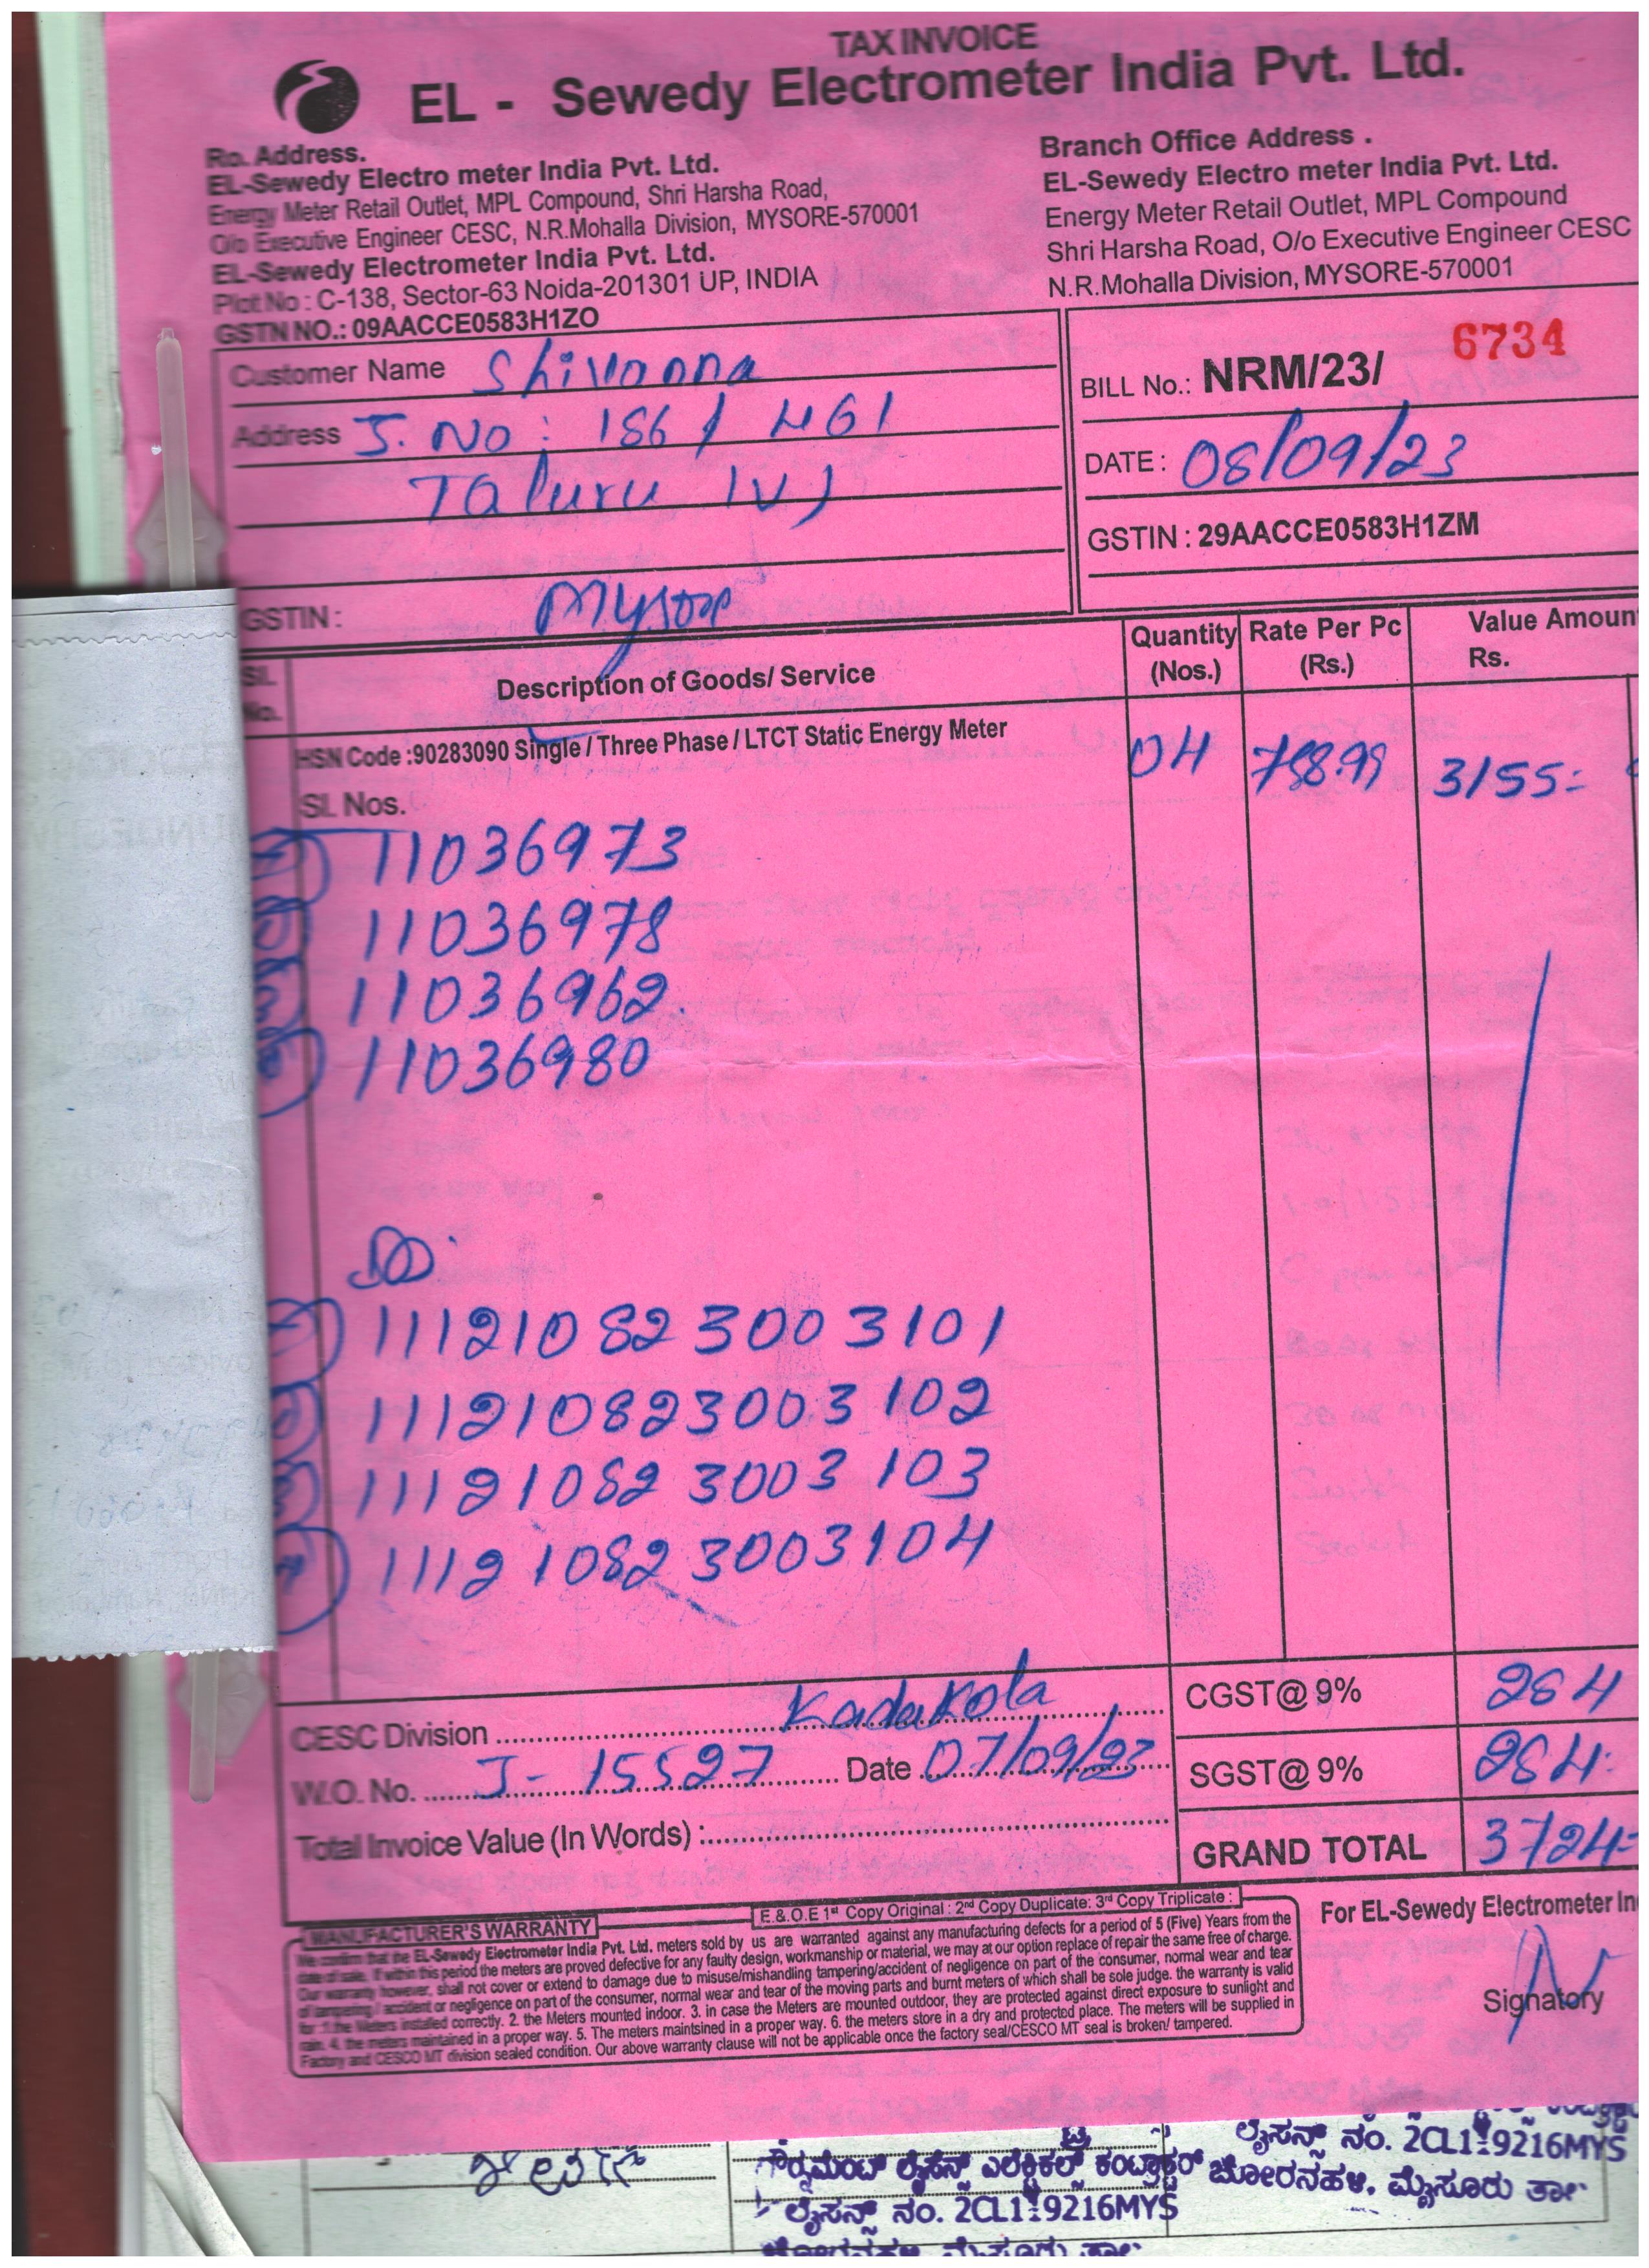 TAX INVOICE
EL - Sewedy Electrometer India Pvt. Ltd.
Ro. Address.
EL-Sewedy Electro meter India Pvt. Ltd.
Energy Meter Retail Outlet, MPL Compound, Shri Harsha Road,
O/o Executive Engineer CESC, N.R.Mohalla Division, MYSORE-570001
EL-Sewedy Electrometer India Pvt. Ltd.
Plot No : C-138, Sector-63 Noida-201301 UP, INDIA
GSTN NO.: 09AACCE0583H1ZO
Branch Office Address .
EL-Sewedy Electro meter India Pvt. Ltd.
Energy Meter Retail Outlet, MPL Compound
Shri Harsha Road, O/o Executive Engineer CESC
N.R.Mohalla Division, MYSORE-570001
Customer Name Shivanna
Address J. No : 186 / 461
Taluru (V)
GSTIN : Mysore
BILL No.: NRM/23/ 6734
DATE : 08/09/23
GSTIN : 29AACCE0583H1ZM
Sl. No. Description of Goods/ Service Quantity (Nos.) Rate Per Pc (Rs.) Value Amount Rs.
HSN Code :90283090 Single / Three Phase / LTCT Static Energy Meter 04 788.99 3155=
Sl. Nos.
11036973
11036978
11036962
11036980
111210823003101
111210823003102
111210823003103
111210823003104
CESC Division Kadakola
W.O. No. J- 15527 Date 07/09/23
Total Invoice Value (In Words) :
CGST@ 9% 284
SGST@ 9% 284
GRAND TOTAL 3724=
E.& O.E 1st Copy Original : 2nd Copy Duplicate: 3rd Copy Triplicate :
MANUFACTURER'S WARRANTY
We confirm that the EL-Sewedy Electrometer India Pvt. Ltd. meters sold by us are warranted against any manufacturing defects for a period of 5 (Five) Years from the
date of sale. If within this period the meters are proved defective for any faulty design, workmanship or material, we may at our option replace of repair the same free of charge.
Our warranty however, shall not cover or extend to damage due to misuse/mishandling tampering/accident of negligence on part of the consumer, normal wear and tear
of tampering / accident or negligence on part of the consumer, normal wear and tear of the moving parts and burnt meters of which shall be sole judge. the warranty is valid
for :1.the Meters installed correctly. 2. the Meters mounted indoor. 3. in case the Meters are mounted outdoor, they are protected against direct exposure to sunlight and
rain. 4. the meters maintained in a proper way. 5. The meters maintsined in a proper way. 6. the meters store in a dry and protected place. The meters will be supplied in
Factory and CESCO MT division sealed condition. Our above warranty clause will not be applicable once the factory seal/CESCO MT seal is broken/ tampered.
For EL-Sewedy Electrometer In
Signatory
ಲೈಸನ್ಸ್ ನಂ. 2CL1:9216MYS
ಲೈಸೆನ್ಸ್ ಎಲೆಕ್ಟ್ರಿಕಲ್ಸ್ ಕಂಟ್ರಾಕ್ಟರ್ ಚೋರನಹಳಿ. ಮೈಸೂರು ತಾ॥
ಲೈಸನ್ಸ್ ನಂ. 2CL1:9216MYS